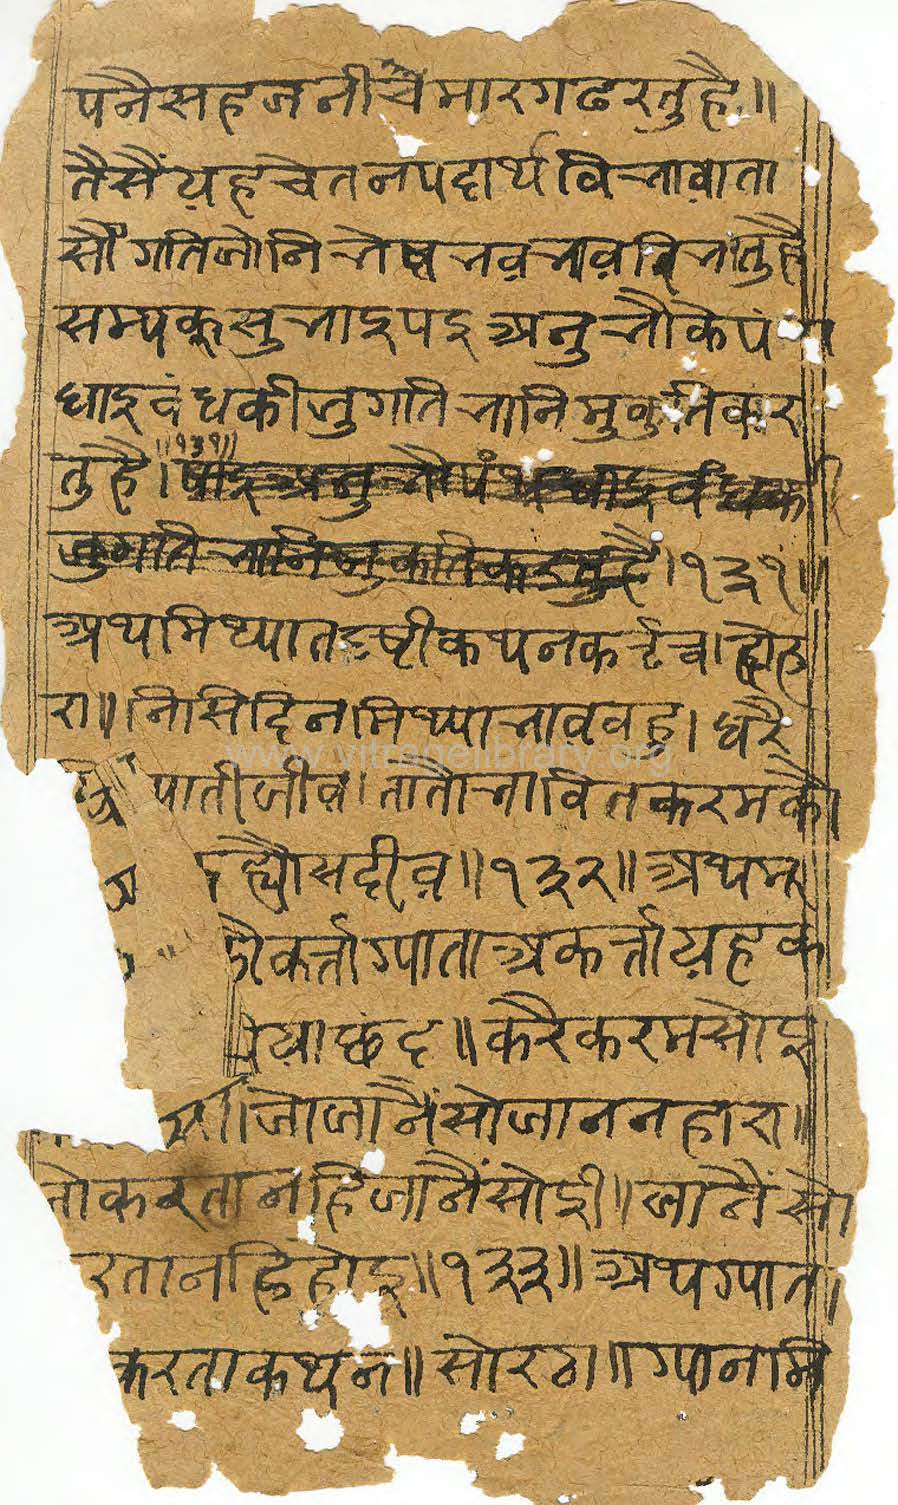 पनैसहजनीचैमारगढरतुहै॥
तैसैंय़हचेतनपदार्थविभावाता
सौंगतिजोनिभेषभव़भाव़रिभातुहै
सम्यक्सुभाइपइअनुभौकेपं
धाइवंधकीजुगतिभानिमुकुतिकर
तुहै।॥१३१॥
जुगतिभानिमुकतिकरतुहै।१३१॥
अथमिथ्यातदृष्टीकथनकर्तृत्व।दोह
रा॥निसिदिनमिथ्याभावबहु।धरै
पातीजीव़।तातोभावितकरमकौ।
ह्यौसदीव़॥१३२॥अथम
कर्त्ताग्याताअकर्त्ताय़हक
य़ाछंद॥करैकरमसोइ
॥जोजानैंसोजाननहारा॥
करतानहिजानैंसोई॥जानैंसो
रतानहिहोइ॥१३३॥अथग्यात।
करताकथन॥सोरठा॥ग्यानमि
www.vitragelibrary.org